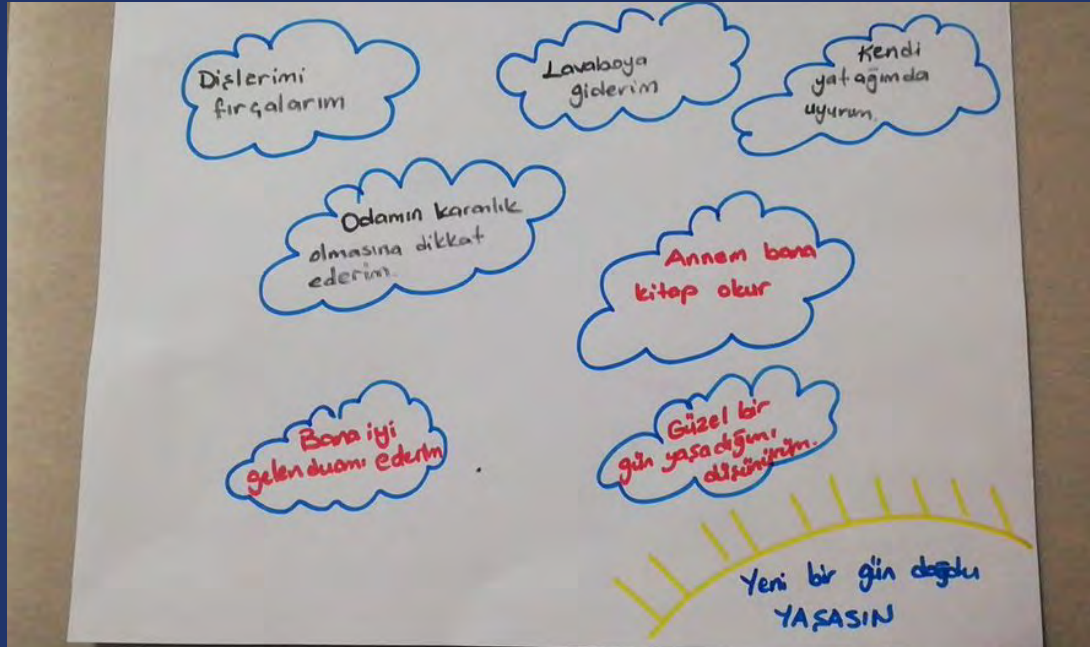 Dişlerimi
fırçalarım
Lavaboya
giderim
Kendi
yatağımda
uyurum.
Odamın karanlık
olmasına dikkat
ederim.
Annem bana
kitap okur
Bana iyi
gelen duamı ederim
Güzel bir
gün yaşadığımı
düşünürüm.
Yeni bir gün doğdu
YAŞASIN